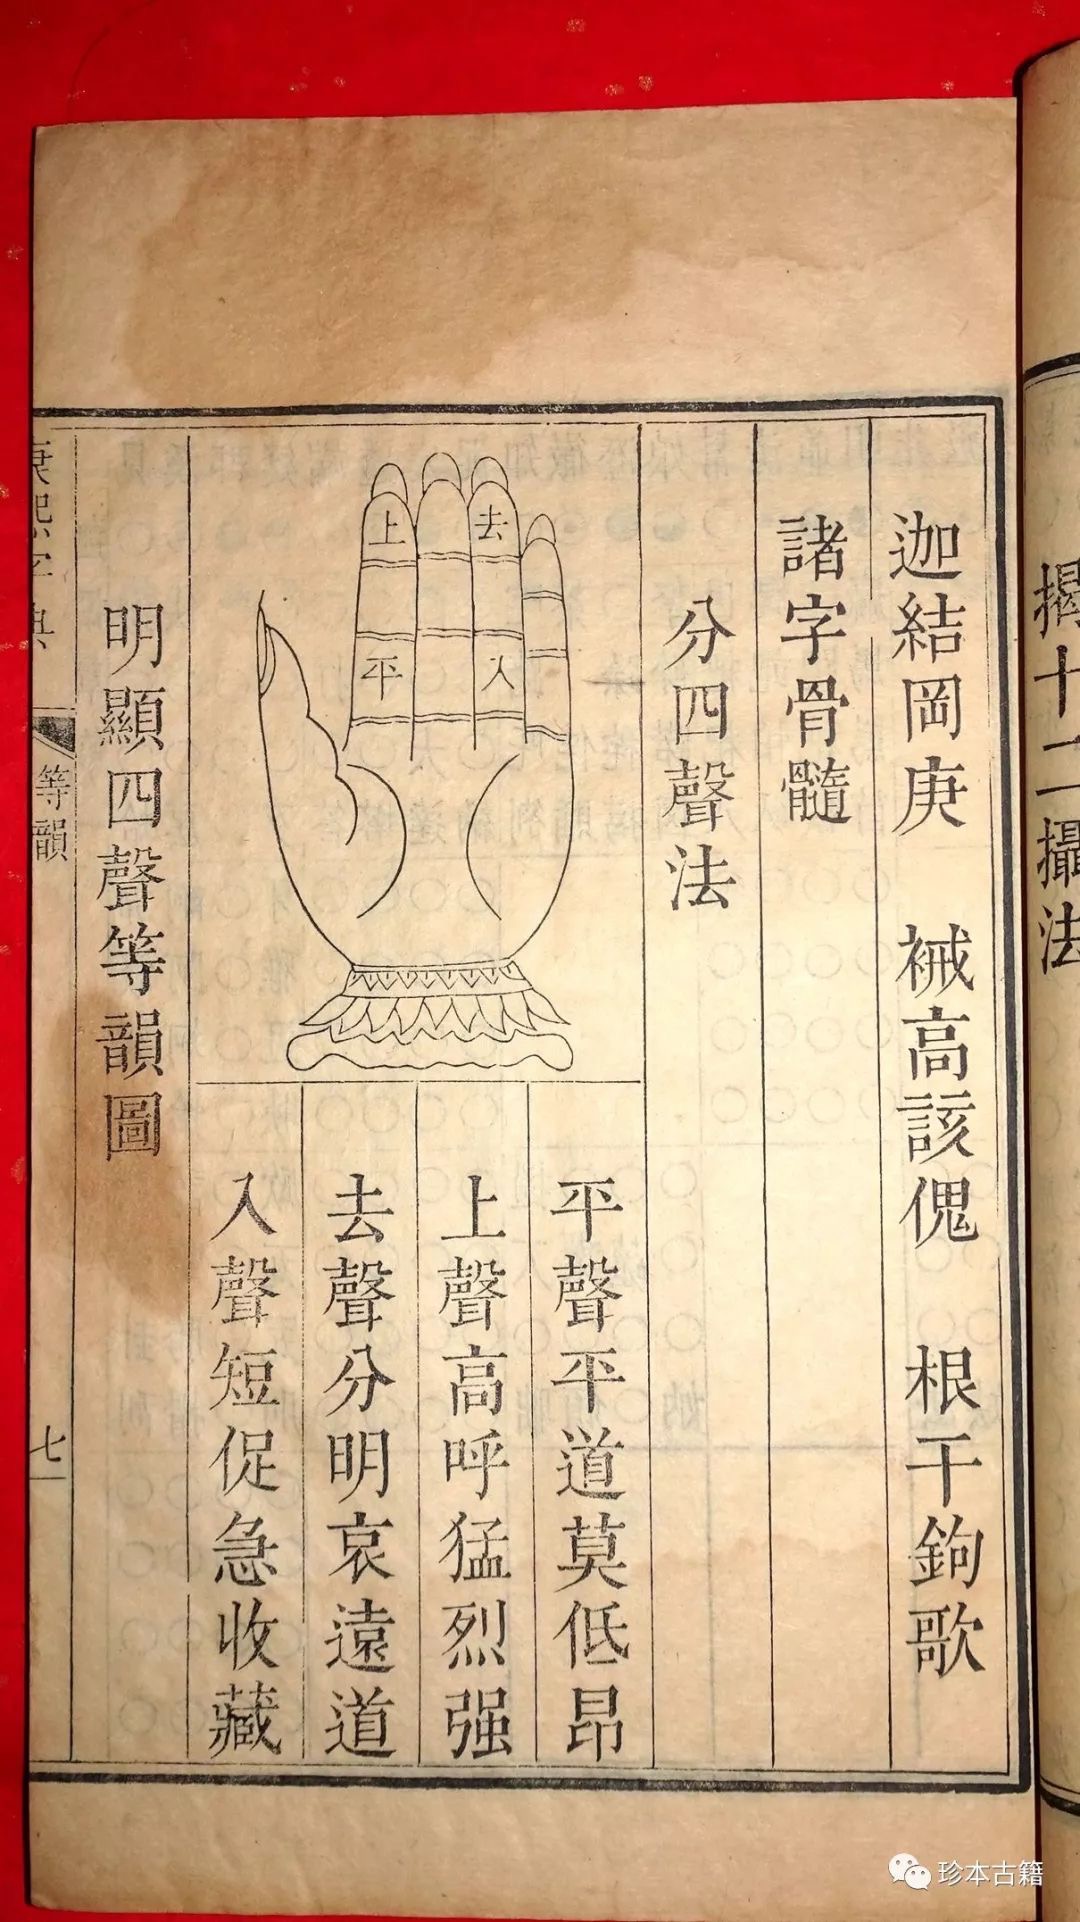 揭十二攝法
迦結岡庚　祴高該傀　根干鉤歌
諸字骨髓
分四聲法
上 去
平 入
平聲平道莫低昂
上聲高呼猛烈强
去聲分明哀遠道
入聲短促急收藏
明顯四聲等韻圖
康熙字典
等韻
七
珍本古籍